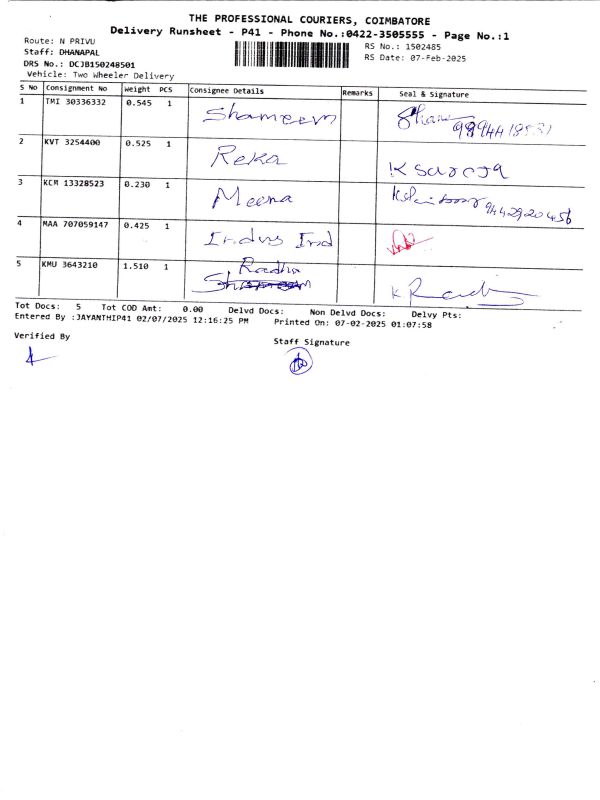 THE PROFESSIONAL COURIERS, COIMBATORE
Delivery Runsheet - P41 - Phone No.:0422-3505555 - Page No.:1
Route: N PRIVU
RS No.: 1502485
Staff: DHANAPAL
RS Date: 07-Feb-2025
DRS No.: DCJB150248501
Vehicle: Two Wheeler Delivery
S No Consignment No Weight PCS Consignee Details Remarks Seal & Signature
1 TMI 30336332 0.545 1 Shameem
2 KVT 3254400 0.525 1 Reka K Saroja
3 KCM 13328523 0.230 1 Meena 9442920456
4 MAA 707059147 0.425 1 Indus Ind
5 KMU 3643210 1.510 1 Radha
Shameem
Tot Docs: 5 Tot COD Amt: 0.00 Delvd Docs: Non Delvd Docs: Delvy Pts:
Entered By :JAYANTHIP41 02/07/2025 12:16:25 PM Printed On: 07-02-2025 01:07:58
Verified By
Staff Signature